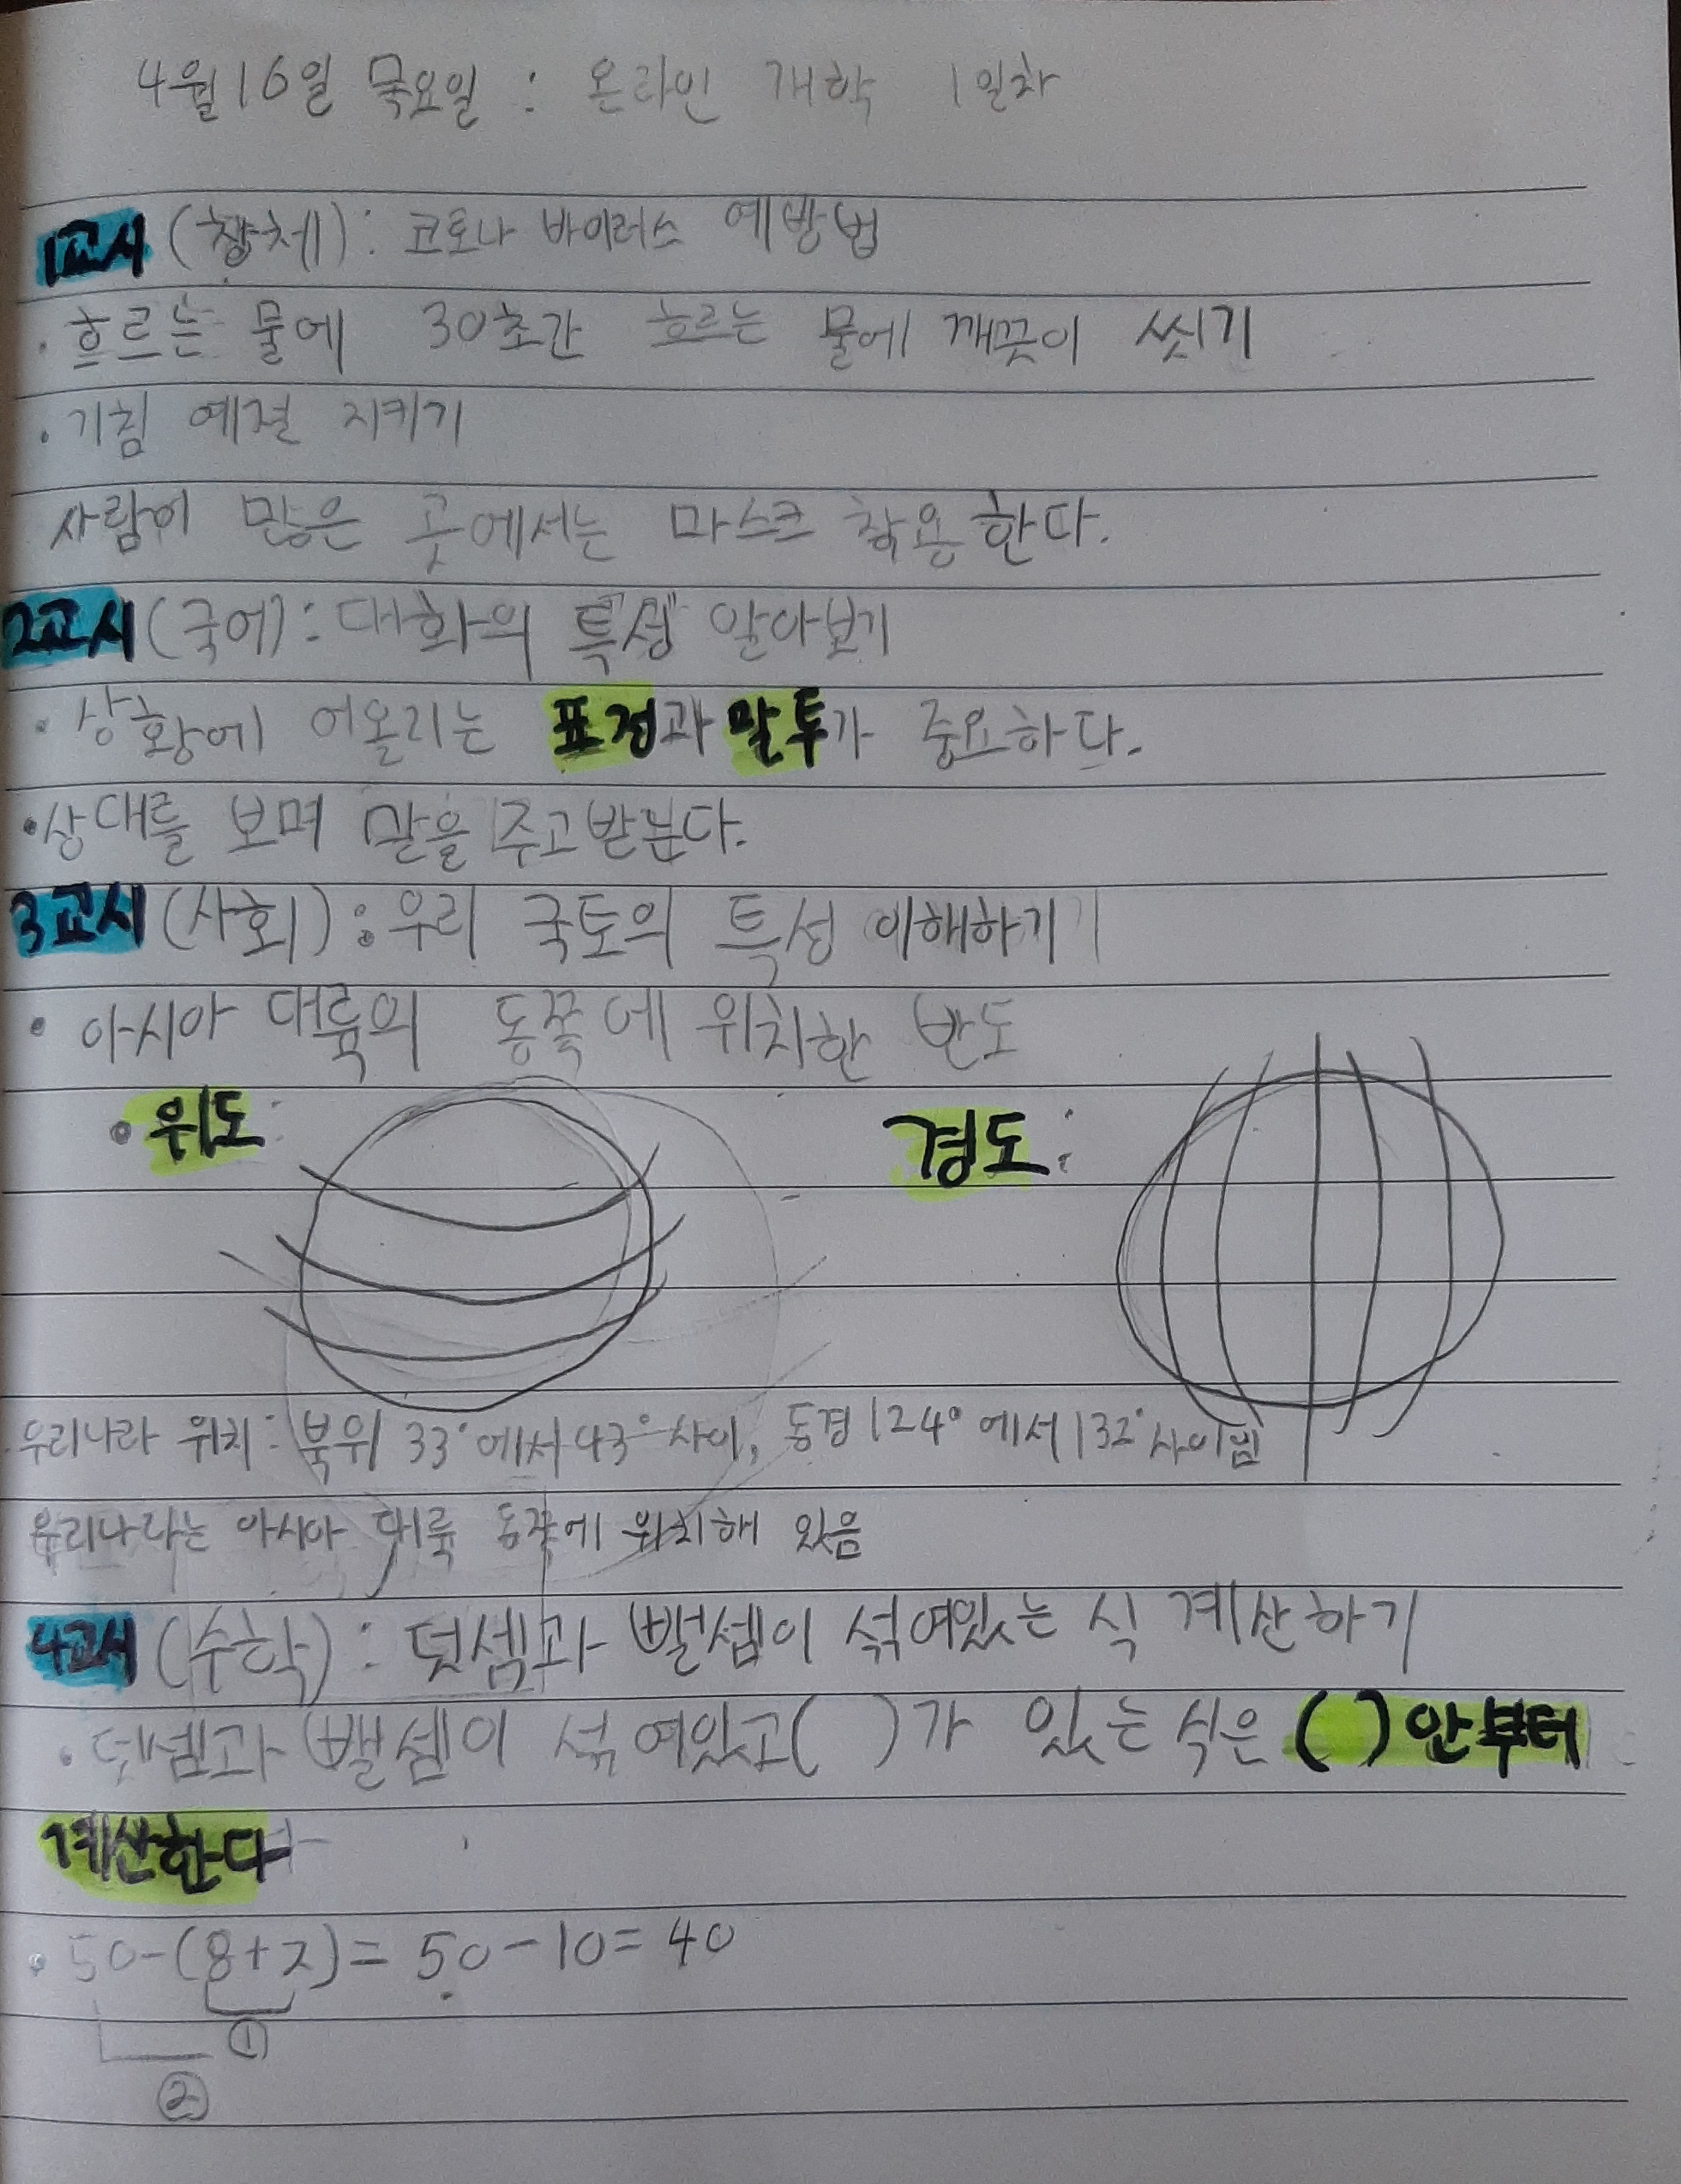 4월 16일 목요일 : 온라인 개학 1일차
1교시 (창체) : 코로나 바이러스 예방법
· 흐르는 물에 30초간 흐르는 물에 깨끗이 씻기
· 기침 예절 지키기
사람이 많은 곳에서는 마스크 착용한다.
2교시 (국어) : 대화의 특성 알아보기
· 상황에 어울리는 표정과 말투가 중요하다.
· 상대를 보며 말을 주고받는다.
3교시 (사회) : 우리 국토의 특성 이해하기
· 아시아 대륙의 동쪽에 위치한 반도
· 위도: 경도:
· 우리나라 위치: 북위 33°에서 43° 사이, 동경 124°에서 132° 사이임
우리나라는 아시아 대륙 동쪽에 위치해 있음
4교시 (수학) : 덧셈과 뺄셈이 섞여있는 식 계산하기
· 덧셈과 뺄셈이 섞여있고 ( )가 있는 식은 ( ) 안부터
계산한다
· 50-(8+2)= 50-10=40
①
②